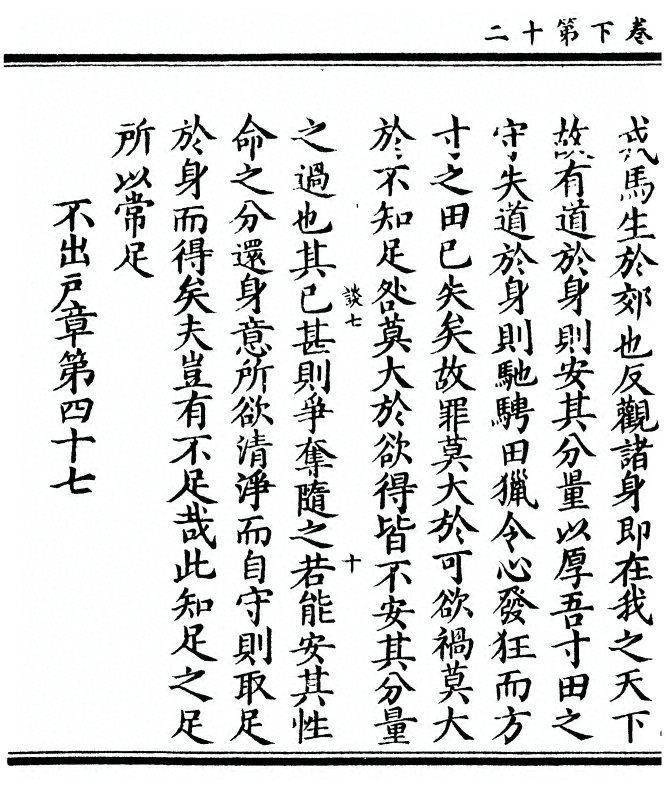 卷下第十二
戎馬生於郊也反觀諸身即在我之天下
故有道於身則安其分量以厚吾寸田之
守失道於身則馳騁田獵令心發狂而方
寸之田已失矣故罪莫大於可欲禍莫大
於不知足咎莫大於欲得皆不安其分量
談七 十
之過也其已甚則爭奪隨之若能安其性
命之分還身意所欲清淨而自守則取足
於身而得矣夫豈有不足哉此知足之足
所以常足
不出戶章第四十七